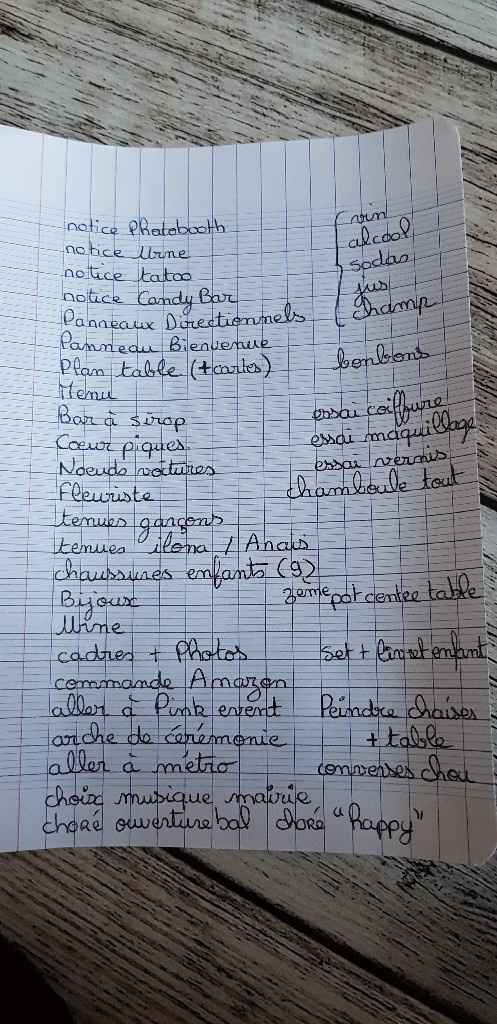 notice Photobooth
notice Urne
notice tatoo
notice Candy Bar
Panneaux Directionnels
Panneau Bienvenue
Plan table (+cartes)
Menu
Bar à sirop
Coeur piques
Noeuds voitures
Fleuriste
tenues garçons
tenues ilona / Anais
chaussures enfants (9)
Bijoux
Urne
cadres + Photos
commande Amazon
aller à Pink event
arche de cérémonie
aller à métro
choix musique mairie
choré ouverture bal choré "happy"
vin
alcool
sodas
jus
champ
bonbons
essai coiffure
essai maquillage
essai vernis
chamboule tout
3eme pot centre table
set + livret enfant
Peindre chaises
+ table
converses chou